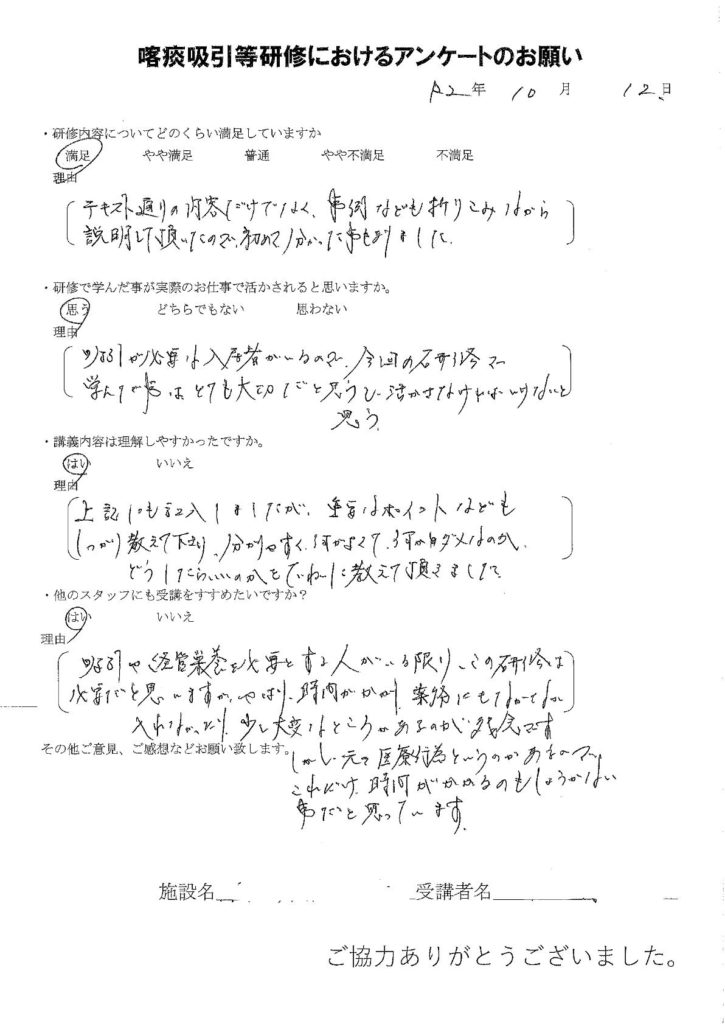 喀痰吸引等研修におけるアンケートのお願い
R2年 10月 12日
・研修内容についてどのくらい満足していますか
満足 やや満足 普通 やや不満足 不満足
理由
テキスト通りの内容だけでなく、事例なども折りこみながら
説明して頂いたので、初めて分かった事もありました。
・研修で学んだ事が実際のお仕事で活かされると思いますか。
思う どちらでもない 思わない
理由
吸引が必要な入居者がいるので、今回の研修で
学んだ事はとても大切だと思うし、活かさなければいけないと
思う。
・講義内容は理解しやすかったですか。
はい いいえ
理由
上記にも記入しましたが、重要なポイントなども
しっかり教えて下さり、分かりやすく、何がよくて、何がダメなのか、
どうしたらいいのかもていねいに教えて頂きました。
・他のスタッフにも受講をすすめたいですか？
はい いいえ
理由
吸引や経管栄養を必要とする人がいる限り、この研修は
必要だと思いますが、やはり、時間がかかり、業務にもなかなか
入れなかったり、少し大変なところがあるのが残念です
その他ご意見、ご感想などお願い致します。
しかし、元々医療行為というのがあるので、
これだけ、時間がかかるのもしょうがない
事だと思っています。
施設名 受講者名
ご協力ありがとうございました。